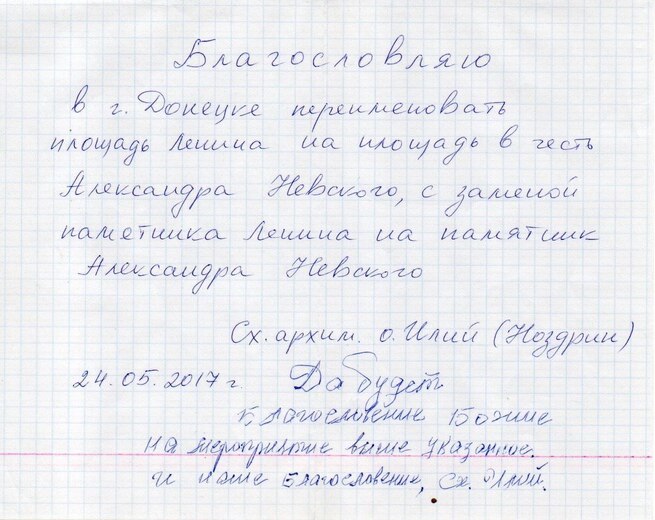 Благословляю
в г. Донецке переименовать
площадь Ленина на площадь в честь
Александра Невского, с заменой
памятника Ленина на памятник
Александра Невского
Сх. архим. о. Илий (Ноздрин)
24.05.2017 г. Да будет
Благословение Божие
на мероприятие выше указанное.
и наше Благословение, Сх. Илий.